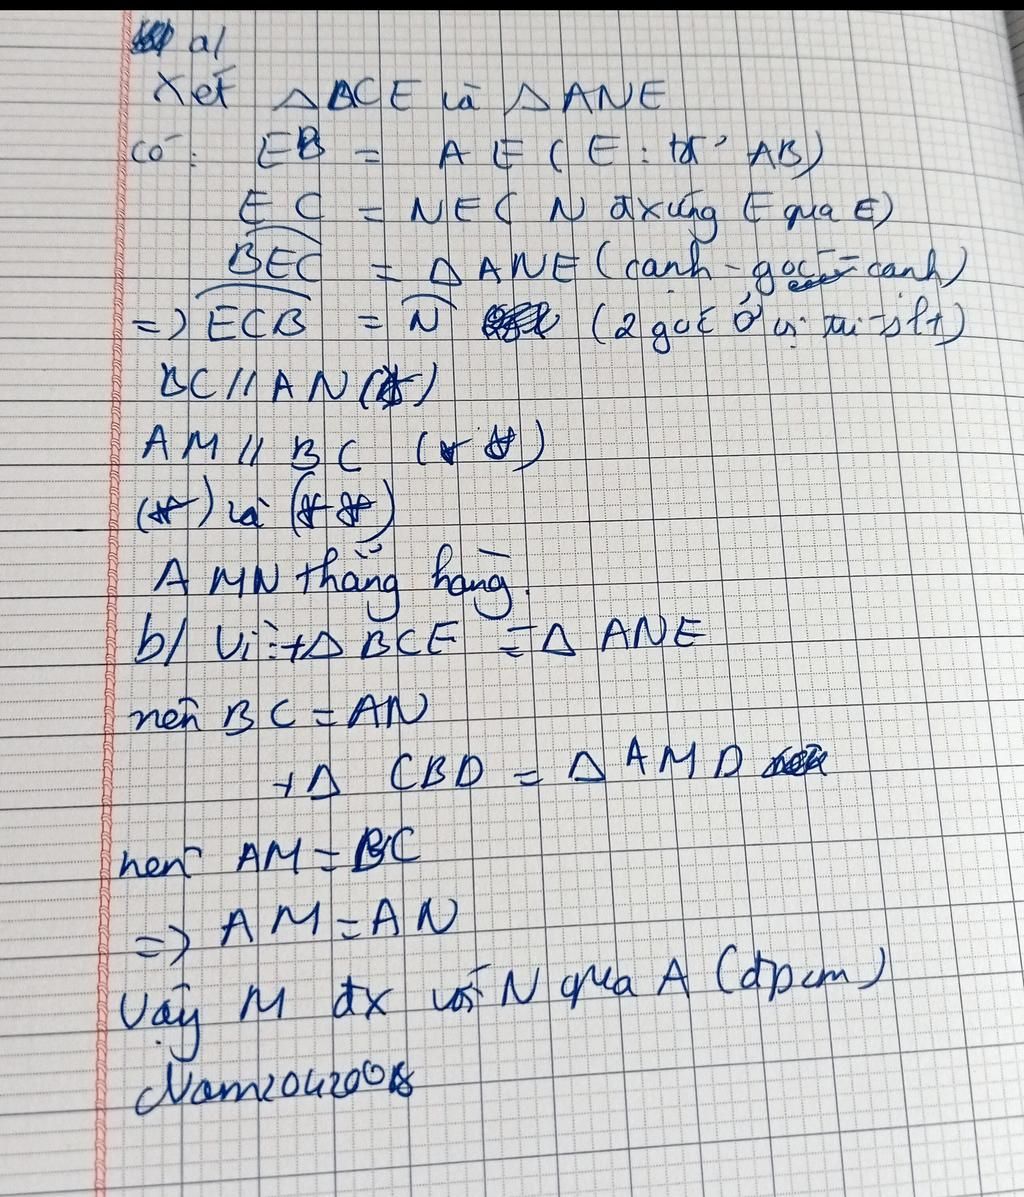 a/
Xét △BCE và △ANE
có: EB = AE (E: tđ' AB)
EC = NE ( N đxứng E qua E)
BEC = △ANE (cạnh - góc - cạnh)
=> ECB = N (2 góc ở vị trí slt)
BC // AN (*)
AM // BC (**)
(*) và (**)
A MN thẳng hàng.
b/ Vì: + △ BCE = △ ANE
nên BC = AN
+ △ CBD = △ AMD
nên AM = BC
=> AM = AN
Vậy M đx với N qua A (đpcm)
Nam2042008